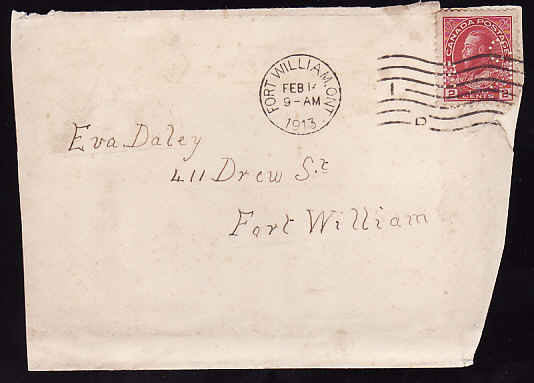 CANADA POSTAGE
2 CENTS 2
FORT WILLIAM, ONT
FEB
9-AM
1913
I
D
Eva Daley
411 Drew St
Fort William